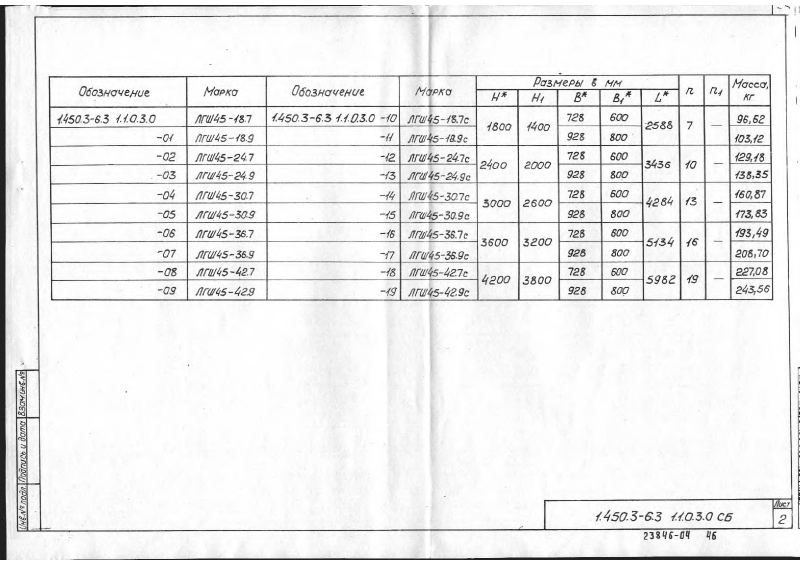 Обозначение Марка Обозначение Марка Размеры в мм n n1 Масса, кг
H* H1 B* B1* L*
1.450.3-6.3 1.1.0.3.0 ЛГШ45-18.7 1.450.3-6.3 1.1.0.3.0 -10 ЛГШ45-18.7с 1800 1400 728 600 2588 7 — 96,62
-01 ЛГШ45-18.9 -11 ЛГШ45-18.9с 928 800 103,12
-02 ЛГШ45-24.7 -12 ЛГШ45-24.7с 2400 2000 728 600 3436 10 — 129,18
-03 ЛГШ45-24.9 -13 ЛГШ45-24.9с 928 800 138,35
-04 ЛГШ45-30.7 -14 ЛГШ45-30.7с 3000 2600 728 600 4284 13 — 160,87
-05 ЛГШ45-30.9 -15 ЛГШ45-30.9с 928 800 173,83
-06 ЛГШ45-36.7 -16 ЛГШ45-36.7с 3600 3200 728 600 5134 16 — 193,49
-07 ЛГШ45-36.9 -17 ЛГШ45-36.9с 928 800 208,70
-08 ЛГШ45-42.7 -18 ЛГШ45-42.7с 4200 3800 728 600 5982 19 — 227,08
-09 ЛГШ45-42.9 -19 ЛГШ45-42.9с 928 800 243,56
Инв.№ подл. Подпись и дата Взам.инв.№
1.450.3-6.3 1.1.0.3.0 СБ
Лист
2
23846-04 46